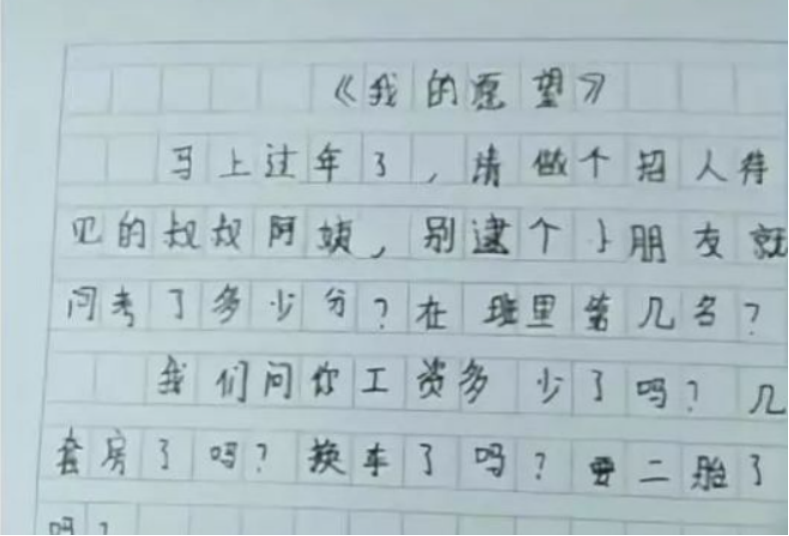 《我的愿望》
马上过年了,请做个招人待
见的叔叔阿姨,别逮个小朋友就
问考了多少分?在班里第几名?
我们问你工资多少了吗?几
套房了吗?换车了吗?要二胎了
吗?